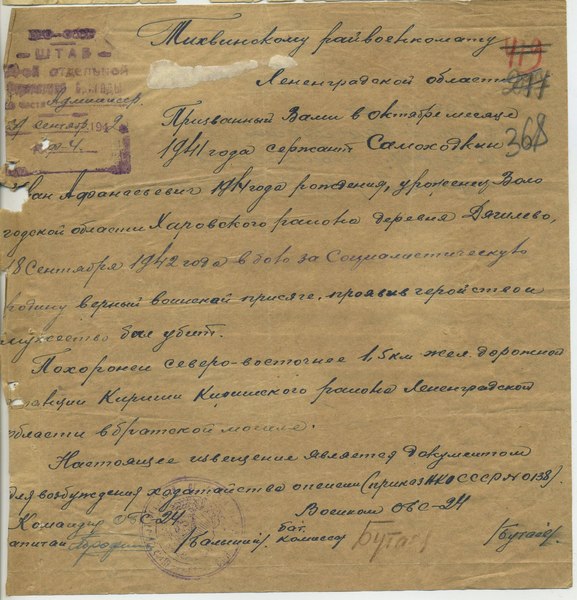 НКО-СССР
ШТАБ
ОТДЕЛЬНОЙ
БРИГАДЫ
Админстр.
сентяб. 194
Тихвинскому райвоенкомату
419
Ленинградской области
Призванный Вами в октябре месяце
368
1941 года сержант Самоходкин
ван Афанасьевич 1914 года рождения, уроженец Воло
годской области Харовского района деревня Дягилево,
18 Сентября 1942 года в бою за Социалистическую
родину верный воинской присяге, проявив геройство и
мужество был убит.
Похоронен северо-восточнее 1,5 км жел. дорожной
станции Кириши Киришского района Ленинградской
области в братской могиле.
Настоящее извещение является документом
для возбуждения ходатайства о пенсии (приказ НКО СССР № 0138).
Командир ОБС-24
Военком ОБС-24
апитан
бат. комиссар
Бутаев
/Бутаев/